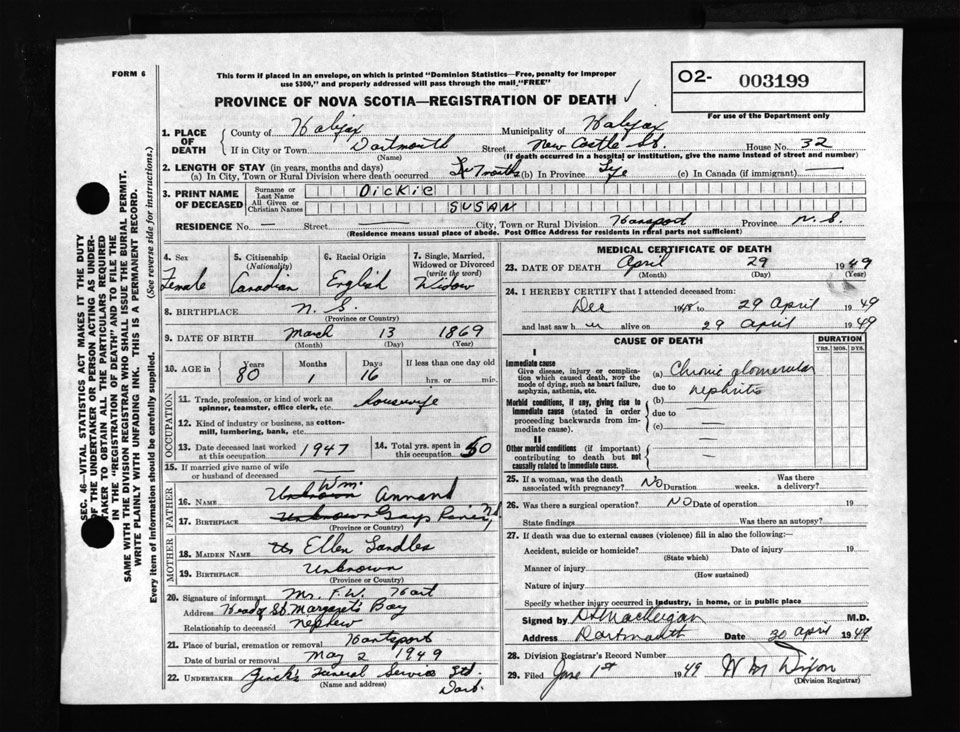 FORM 6
This form if placed in an envelope, on which is printed "Dominion Statistics—Free, penalty for improper
use $300," and properly addressed will pass through the mail "FREE"
O2- 003199
For use of the Department only
PROVINCE OF NOVA SCOTIA—REGISTRATION OF DEATH
1. PLACE OF DEATH
County of Halifax Municipality of Halifax
If in City or Town Dartmouth Street New Castle St. House No. 32
(Name) (If death occurred in a hospital or institution, give the name instead of street and number)
2. LENGTH OF STAY (in years, months and days)
(a) In City, Town or Rural Division where death occurred months (b) In Province Life (c) In Canada (if immigrant) —
3. PRINT NAME OF DECEASED
Surname or Last Name DICKIE
All Given or Christian Names SUSAN
RESIDENCE No. — Street — City, Town or Rural Division Hansport Province N.S.
(Residence means usual place of abode. Post Office Address for residents in rural parts not sufficient)
4. Sex Female
5. Citizenship (Nationality) Canadian
6. Racial Origin English
7. Single, Married, Widowed or Divorced (write the word) Widow
8. BIRTHPLACE N.S.
(Province or Country)
9. DATE OF BIRTH March 13 1869
(Month) (Day) (Year)
10. AGE in Years 80 Months 1 Days 16 If less than one day old
hrs. or min.
OCCUPATION
11. Trade, profession, or kind of work as spinner, teamster, office clerk, etc. housewife
12. Kind of industry or business, as cotton-mill, lumbering, bank, etc.
13. Date deceased last worked at this occupation 1947
14. Total yrs. spent in this occupation 50
15. If married give name of wife or husband of deceased —
FATHER
16. NAME Unknown Wm. Annand
17. BIRTHPLACE Unknown Grays River, N.S.
(Province or Country)
MOTHER
18. MAIDEN NAME Ellen Sandles
19. BIRTHPLACE Unknown
(Province or Country)
20. Signature of informant Mr. F.W. Hart
Address Head of St Margaret's Bay
Relationship to deceased nephew
21. Place of burial, cremation or removal Hantsport
Date of burial or removal May 2 1949
22. UNDERTAKER Funeral Service Ltd. Dart.
(Name and address)
MEDICAL CERTIFICATE OF DEATH
23. DATE OF DEATH April 29 1949
(Month) (Day) (Year)
24. I HEREBY CERTIFY that I attended deceased from:
Dec 1948 to 29 April 1949
and last saw her alive on 29 April 1949
CAUSE OF DEATH
DURATION
YRS. MOS. DYS.
I
Immediate cause
Give disease, injury or complication which caused death, NOT the mode of dying, such as heart failure, asphyxia, asthenia, etc.
(a) Chronic glomerular
due to nephritis
Morbid conditions, if any, giving rise to immediate cause (stated in order proceeding backwards from immediate cause).
(b) —
due to —
(c) —
II
Other morbid conditions (if important) contributing to death but not causally related to immediate cause.
25. If a woman, was the death associated with pregnancy? No Duration weeks. Was there a delivery?
26. Was there a surgical operation? NO Date of operation 19
State findings Was there an autopsy?
27. If death was due to external causes (violence) fill in also the following:—
Accident, suicide or homicide? Date of injury 19
(State which)
Manner of injury
(How sustained)
Nature of injury
Specify whether injury occurred in industry, in home, or in public place
Signed by M.D.
Address Dartmouth Date 30 April 1949
28. Division Registrar's Record Number
29. Filed June 1st 1949 W M Dixon
(Division Registrar)
SEC. 46—VITAL STATISTICS ACT MAKES IT THE DUTY
OF THE UNDERTAKER OR PERSON ACTING AS UNDER-
TAKER TO OBTAIN ALL THE PARTICULARS REQUIRED
IN THE "REGISTRATION OF DEATH" AND TO FILE THE
SAME WITH THE DIVISION REGISTRAR WHO SHALL ISSUE THE BURIAL PERMIT.
WRITE PLAINLY WITH UNFADING INK. THIS IS A PERMANENT RECORD.
Every item of information should be carefully supplied. (See reverse side for instructions.)